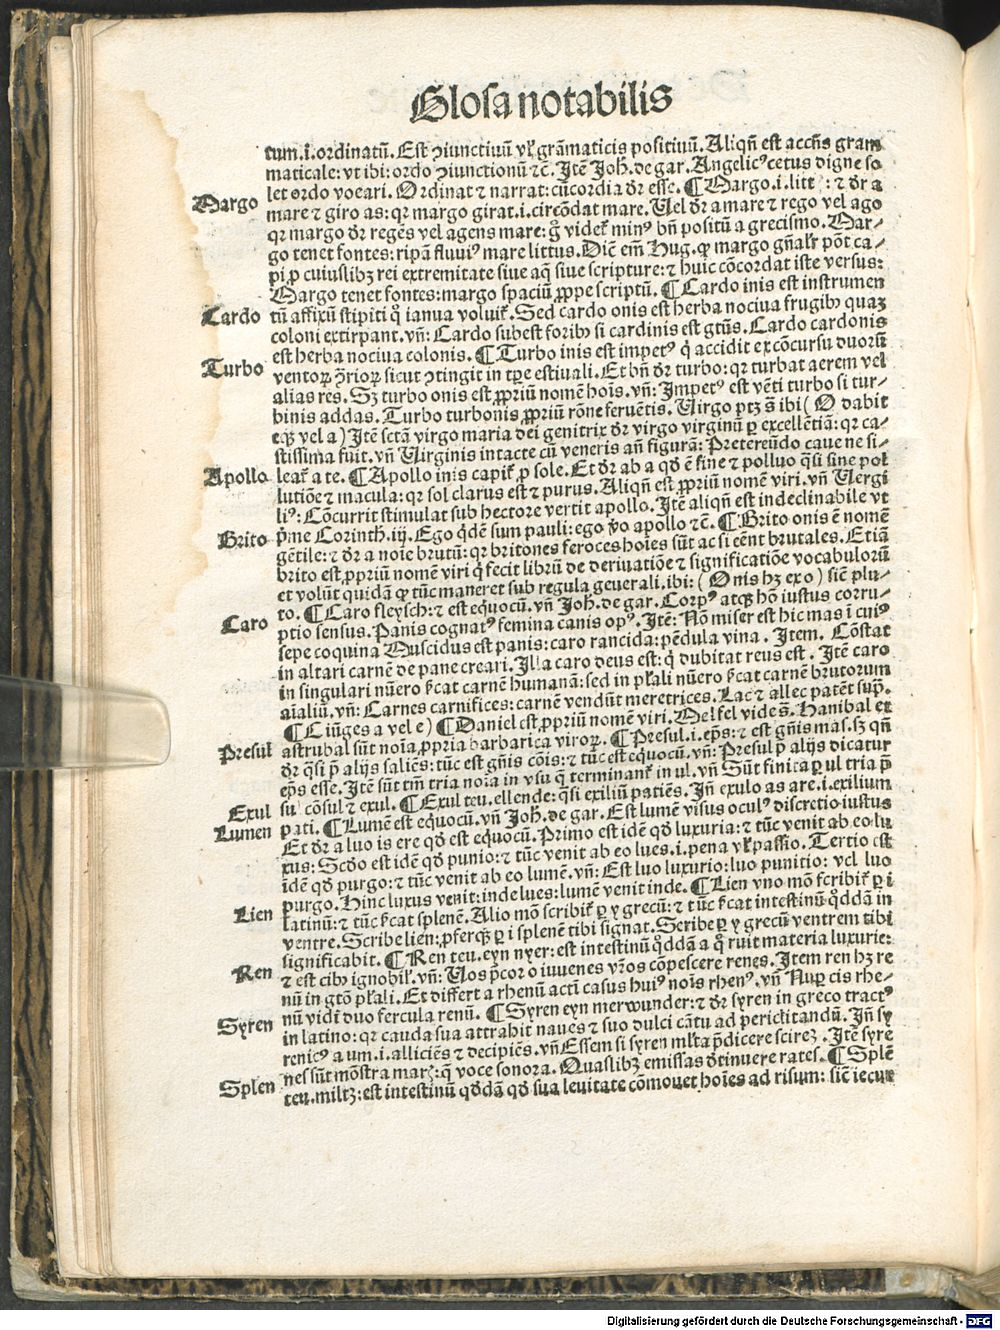 Glosa notabilis
tum.i.ordinatū. Est ꝯiunctiuū vl' grāmaticis positiuū. Aliqñ est accñs gram
maticale: vt ibi: ordo ꝯiunctionū ⁊c̄. Itē Joh̄. de gar. Angelicꝰ cetus digne so
let ordo vocari. Ordinat ⁊ narrat: cū cordia dr̄ esse. ¶ Margo .i. litt : ⁊ dr̄ a
Margo
mare ⁊ giro as: qr margo girat .i. circōdat mare. Uel dr̄ a mare ⁊ rego vel ago
qr margo dr̄ regēs vel agens mare: g̊ videt᷑ minꝰ bñ positū a grecismo. Mar-
go tenet fontes: ripā fluuiꝰ mare littus. Dic̄ em̄ Hug. ꝙ margo gñalr̄ pōt ca-
pi ꝓ cuiuslibꝫ rei extremitate siue aq̄ siue scripture: ⁊ huic cōcordat iste versus:
Margo tenet fontes: margo spaciū ꝓpe scriptū. ¶ Cardo inis est instrumen
Cardo
tū affixū stipiti q̊ ianua voluit᷑. Sed cardo onis est herba nociua frugibꝫ quaꝫ
coloni extirpant. vñ: Cardo subest foribꝫ si cardinis est gt̄us. Cardo cardonis
est herba nociua colonis. ¶ Turbo inis est impetꝰ q̇ accidit ex cōcursu duorū
Turbo
ventoꝝ ꝯ̄rioꝝ sicut ꝯtingit in tꝑe estiuali. Et bñ dr̄ turbo: qr turbat aerem vel
alias res. Sꝫ turbo onis est ꝓpriū nomē hoīs. vñ: Impetꝰ est vēti turbo si tur-
binis addas. Turbo turbonis ꝓpriū rōne feruētis. Uirgo ptꝫ s̄ ibi ( O dabit
eqꝫ vel a ) Itē sctā virgo maria dei genitrix dr̄ virgo virginū ꝑ excellētiā: qr ca-
stissima fuit. vñ Uirginis intacte cū veneris añ figurā: Pretereūdo caue ne si-
leat᷑ a te. ¶ Apollo inis capit᷑ ꝓ sole. Et dr̄ ab a qd̄ ē sine ⁊ polluo q̄si sine pol
Apollo
lutiōe ⁊ macula: qr sol clarus est ⁊ purus. Aliqñ est ꝓpriū nomē viri. vñ Uergi
liꝰ: Cōcurrit stimulat sub hectore vertit apollo. Itē aliqñ est indeclinabile vt
p̄me Corinth. iij. Ego qdē sum pauli: ego v̊o apollo ⁊c̄. ¶ Brito onis ē nomē
Brito
gētile: ⁊ dr̄ a noīe brutū: qr britones feroces hoīes sūt ac si eēnt brutales. Et iā
brito est ꝓpriū nomē viri q̇ fecit librū de deriuatiōe ⁊ significatiōe vocabulorū
et volūt quidā ꝙ tūc maneret sub regula generali. ibi: ( Onis hꝫ exo ) sic̄ plu-
to. ¶ Caro fleysch: ⁊ est equocū. vñ Joh̄. de gar. Corpꝰ atqꝫ hō iustus corru-
Caro
ptio sensus. Panis cognatꝰ femina canis opꝰ. Itē: Nō miser est hic mas ī cuiꝰ
sepe coquina Muscidus est panis: caro rancida: pēdula vina. Item. Cōstat
in altari carnē de pane creari. Illa caro deus est: q̇ dubitat reus est. Itē caro
in singulari nūero sꝯcat carnē humanā: sed in pl'ali nūero sꝯcat carnē brutorum
aīaliū. vñ: Carnes carnifices: carnē vendūt meretrices. Lac ⁊ allec patēt supᷓ.
¶ C iūges a vel e ) ¶ Daniel est ꝓpriū nomē viri. Mel fel vide s̄. Hanibal et
astrubal sūt noīa ꝓpria barbarica viroꝝ. ¶ Presul .i. ep̄s: ⁊ est gn̄is mas. sꝫ qñ
Presul
dr̄ q̄si p̄ alijs saliēs: tūc est gn̄is cōis: ⁊ tūc est equocū. vñ: Presul p̄ alijs dicatur
ep̄s esse. Itē sūt tm̄ tria noīa in vsu q̄ terminant᷑ in ul. vñ Sūt finita ꝑ ul tria p̄
su cōsul ⁊ exul. ¶ Exul teu. ellende: q̄si exiliū patiēs. Inñ exulo as are .i. exilium
Exul
pati. ¶ Lumē est equocū. vñ Joh̄. de gar. Est lumē visus oculꝰ discretio iustus
Lumen
Et dr̄ a luo is ere qd̄ est equocū. Primo est idē qd̄ luxuria: ⁊ tūc venit ab eo lu
xus: Scd̄o est idē qd̄ punio: ⁊ tūc venit ab eo lues .i. pena vl' passio. Tertio est
idē qd̄ purgo: ⁊ tūc venit ab eo lumē. vñ: Est luo luxurio: luo punitio: vel luo
purgo. Hinc luxus venit: inde lues: lumē venit inde. ¶ Lien vno mō scribit᷑ ꝑ i
latinū: ⁊ tūc sꝯcat splenē. Alio mō scribit᷑ ꝑ y grecū: ⁊ tūc sꝯcat intestinū q̊ddā in
Lien
ventre. Scribe lien: ꝓferqꝫ ꝑ i splenē tibi signat. Scribe ꝑ y grecū ventrem tibi
significabit. ¶ Ren teu. eyn nyer: est intestinū q̊ddā a q̊ ruit materia luxurie:
Ren
⁊ est cibꝫ ignobil'. vñ: Uos p̄cor o iuuenes vr̄os cōpescere renes. Item ren hꝫ re
nū in gt̄o pl'ali. Et differt a rhenū actū casus huiꝰ noīs rhenꝰ. vñ Nuꝑ cis rhe-
nū vidi duo fercula renū. ¶ Syren eyn merwunder: ⁊ dr̄ syren in greco tractꝰ
Syren
in latino: qr cauda sua attrahit naues ⁊ suo dulci cātu ad periclitandū. Inñ sy
renicꝰ a um .i. alliciēs ⁊ decipiēs. vñ Essem si syren ml'ta p̄dicere scirē. Itē syre
nes sūt mōstra maꝝ: q̄ voce sonora. Quaslibꝫ emissas dtinuere rates. ¶ Splē
Splen
teu. miltꝫ: est intestinū qd̄dā qd̄ sua leuitate cōmouet hoīes ad risum: sic̄ iecur
Digitalisierung gefördert durch die Deutsche Forschungsgemeinschaft - DFG